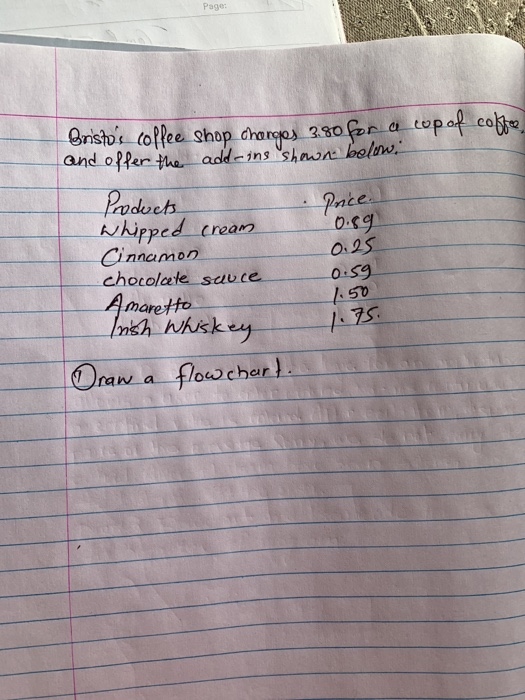 Page:
Bristo's coffee shop charges 3.80 for a cup of coffee,
and offer the add-ins shown below:
Products Price.
Whipped cream 0.89
Cinnamon 0.25
chocolate sauce 0.59
Amaretto 1.50
Irish Whiskey 1.75.
① Draw a flowchart.